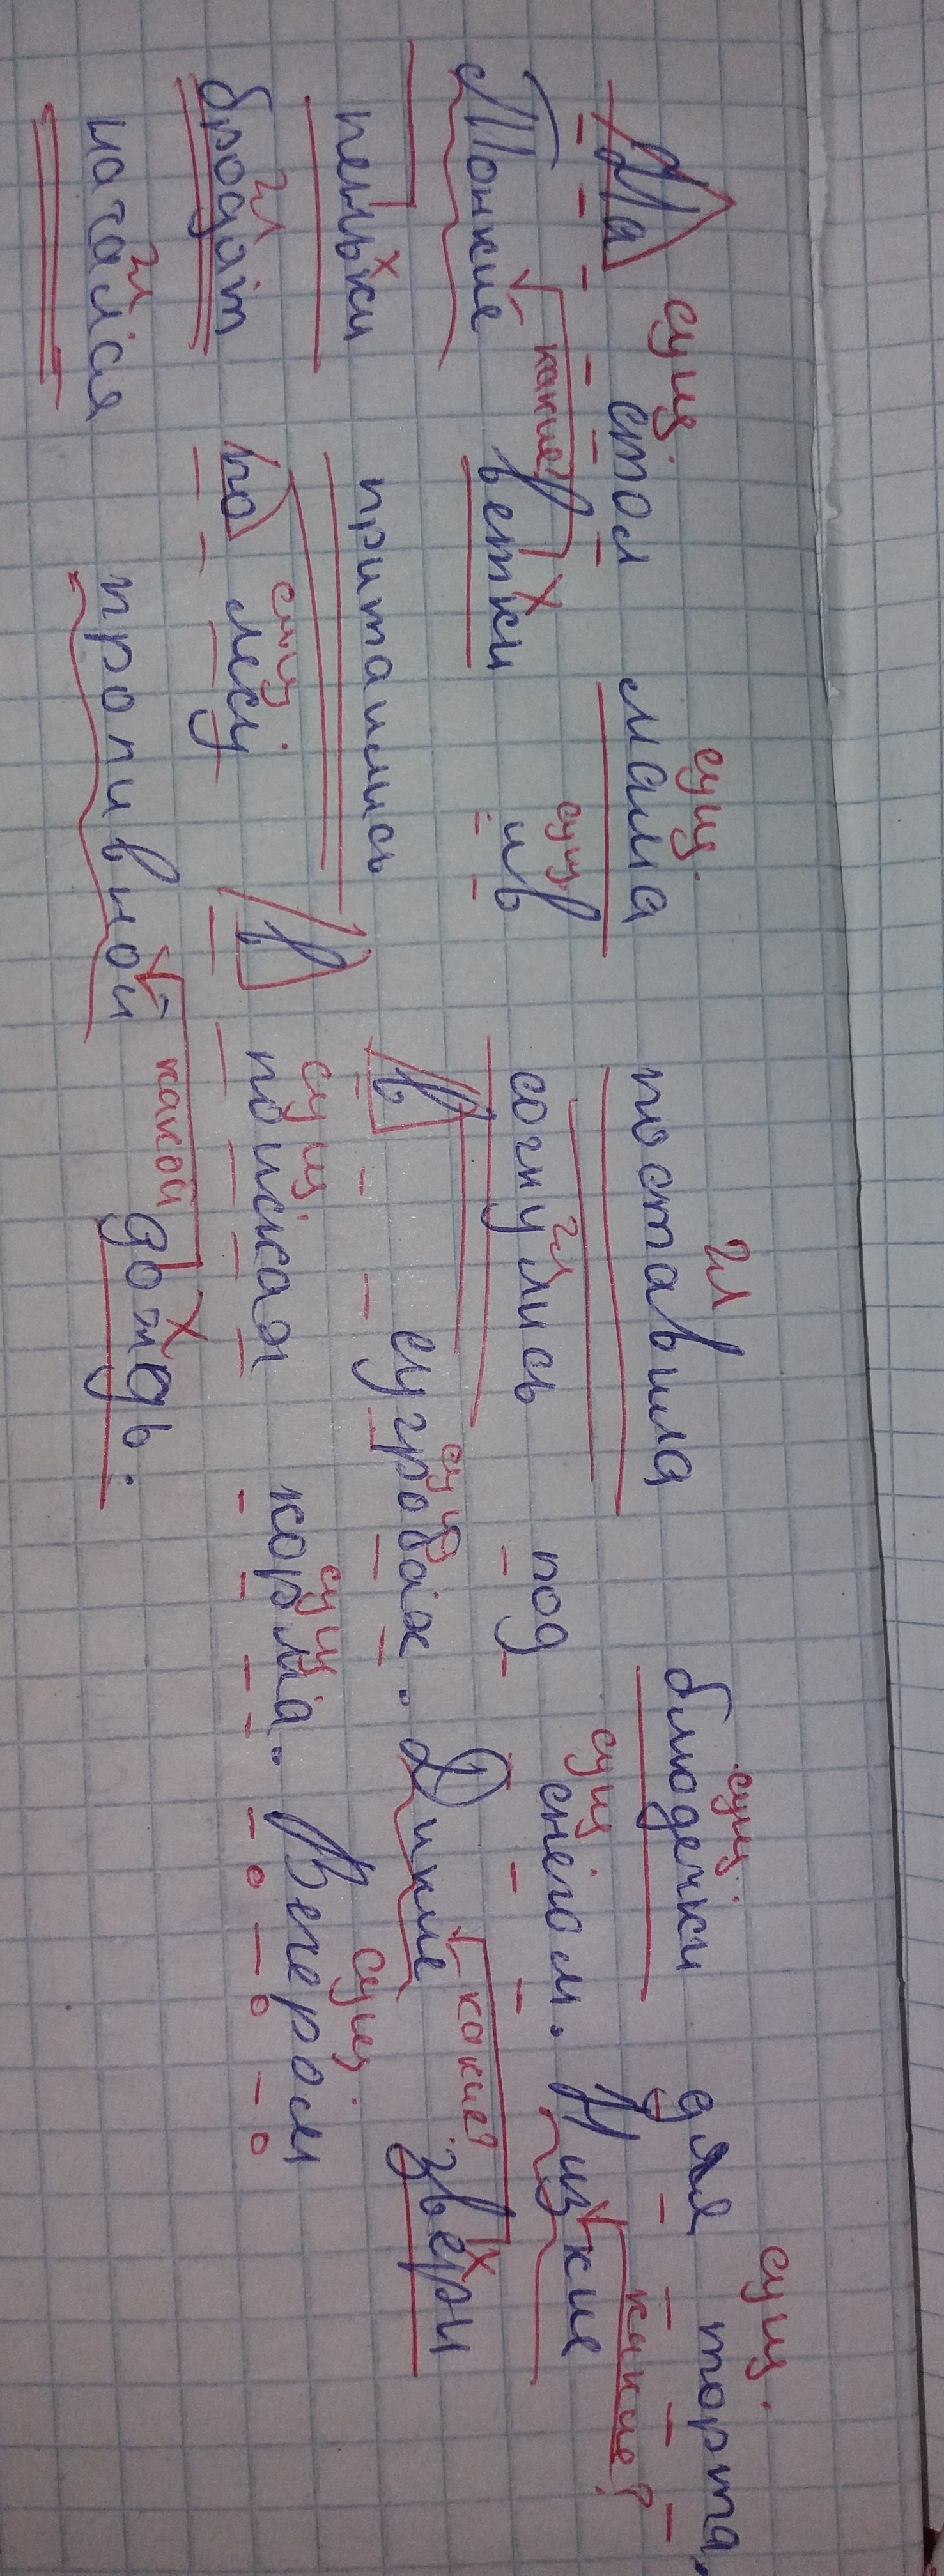 сущ сущ. гл сущ. сущ.
На стол мама поставила блюдечки для торта.
какие? сущ гл сущ какие?
Тонкие ветки ив согнулись под снегом. Низкие
сущ какие?
пеньки притаились в сугробах. Дикие звери
гл сущ сущ сущ сущ
бродят по лесу в поисках корма. Вечером
гл какой
начался проливной дождь.